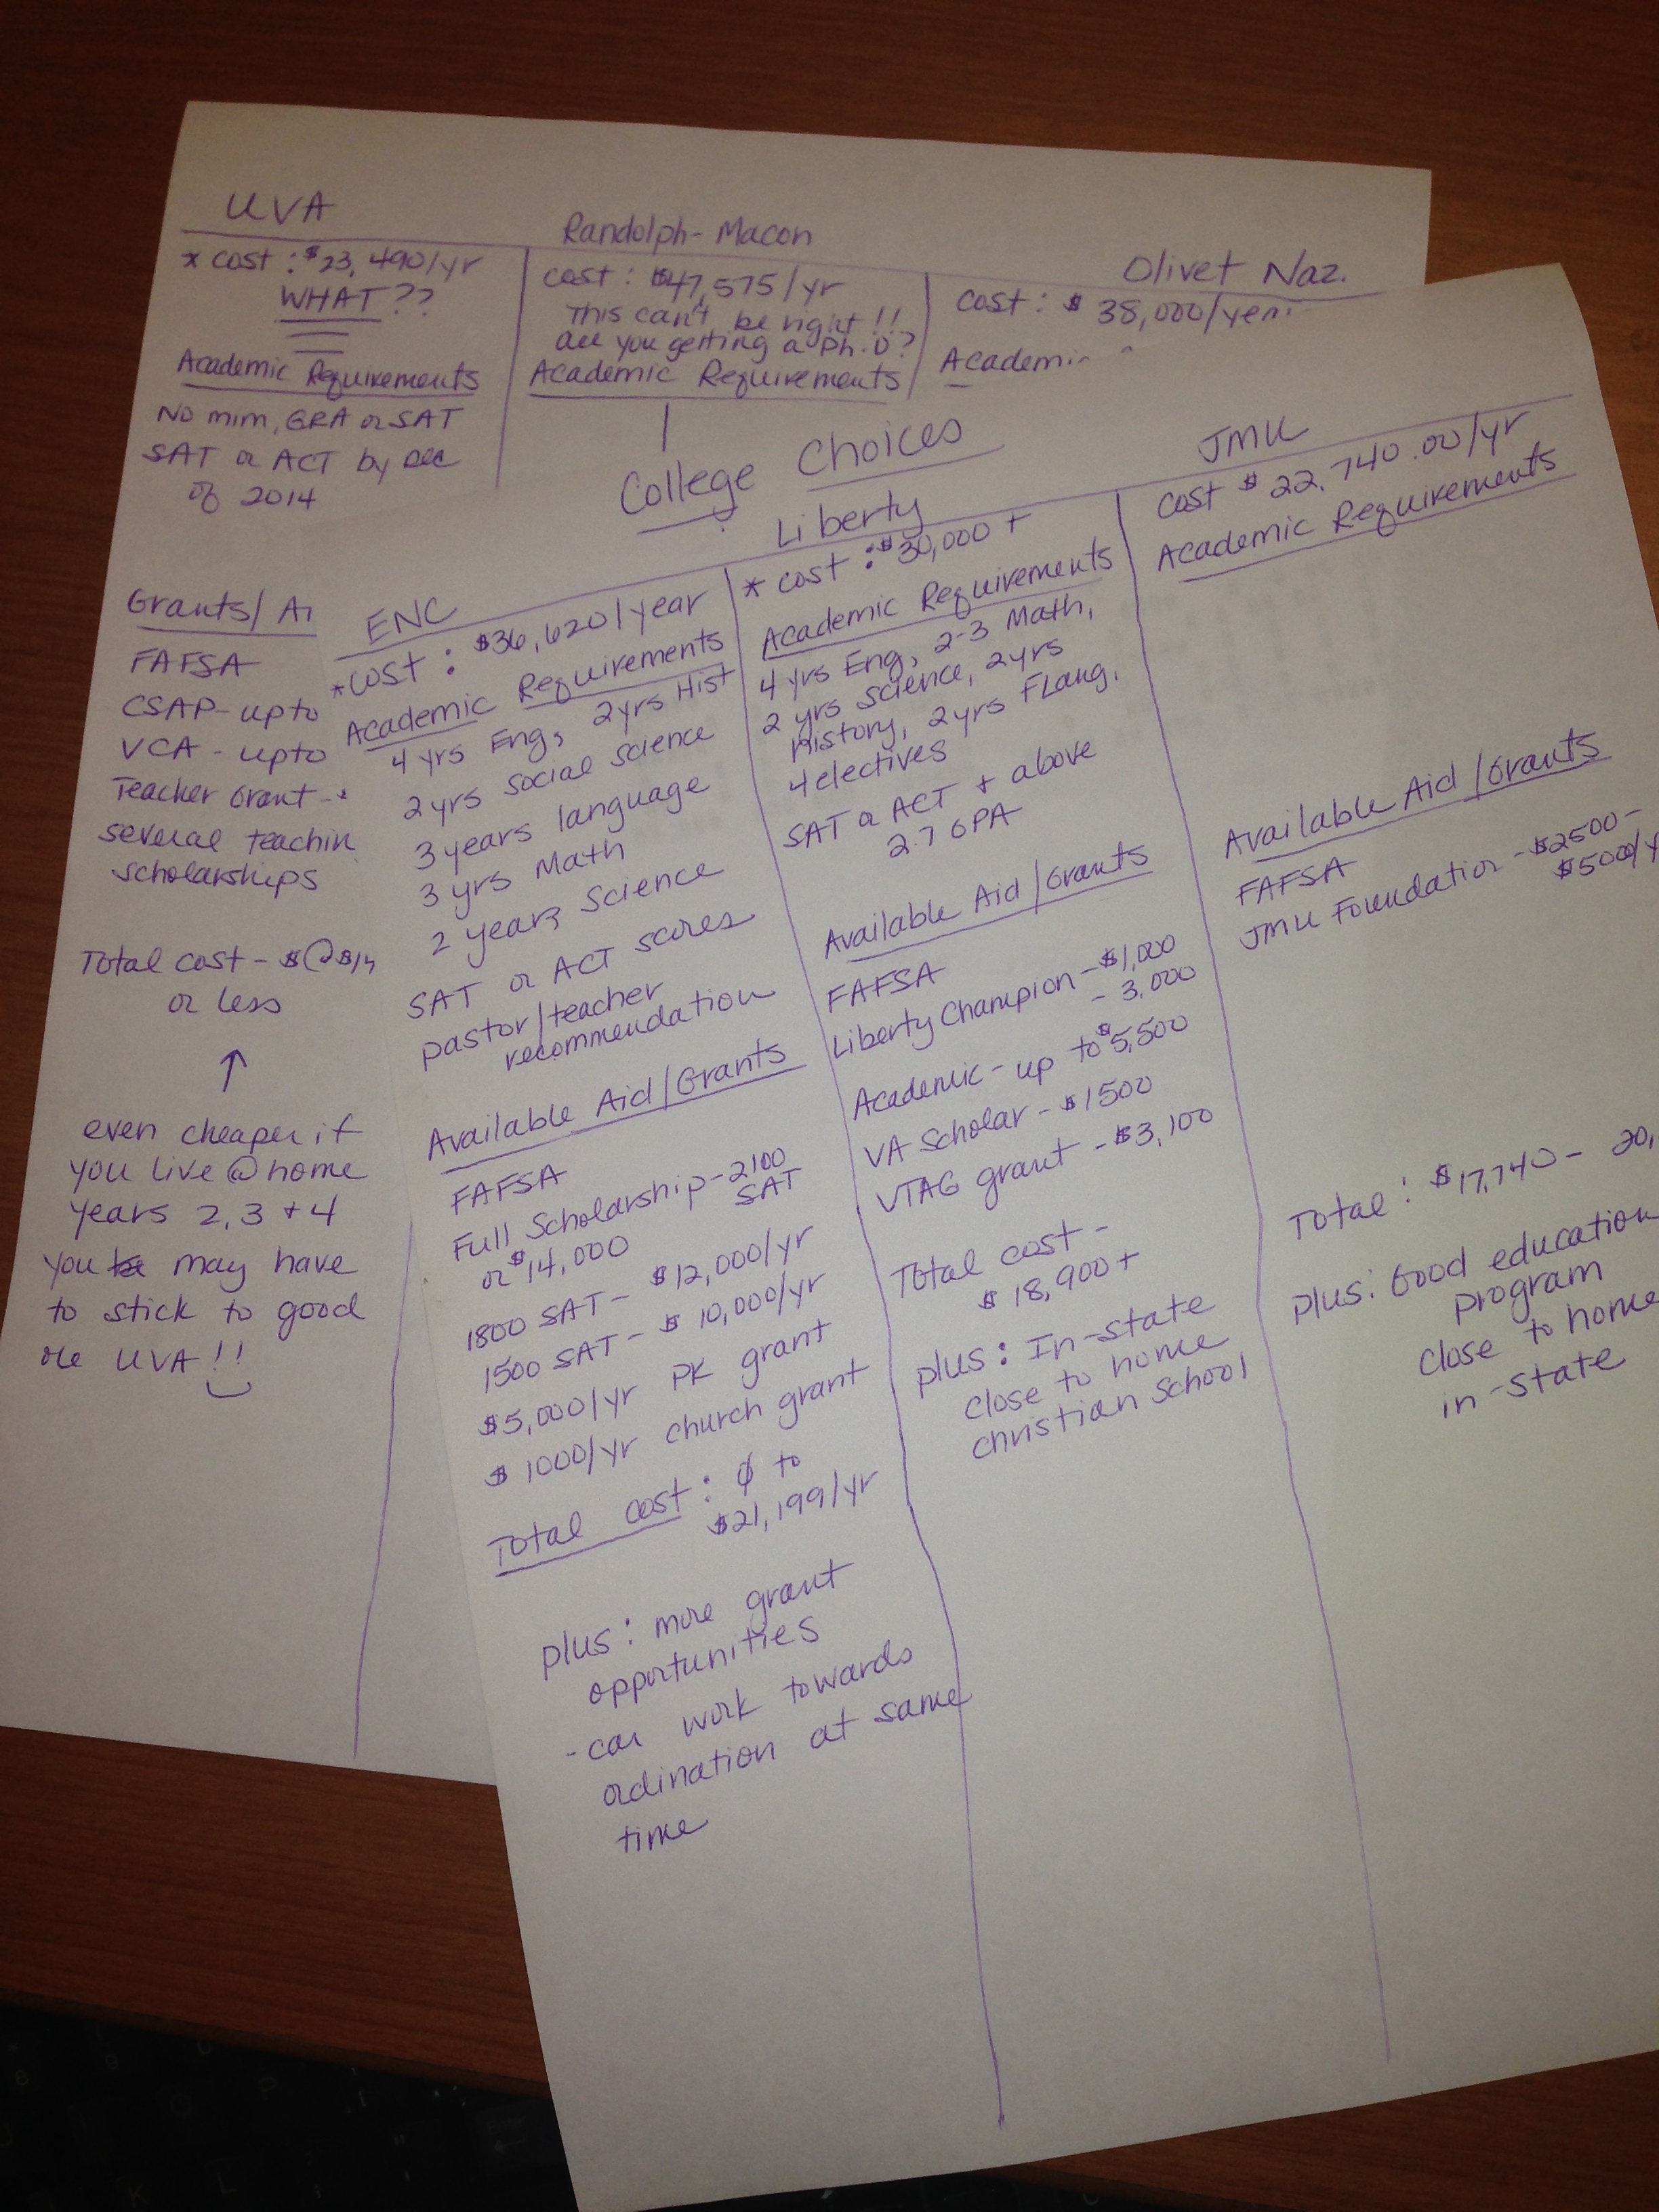 UVA
* cost : $23,490/yr
WHAT ??
Academic Requirements
No mim, GPA or SAT
SAT or ACT by Dec
of 2014
Grants/ Ai
FAFSA
CSAP - up to
VCA - up to
Teacher Grant -
several teachin
scholarships
Total cost - $@$14
or less
↑
even cheaper if
you live @ home
years 2, 3 + 4
you may have
to stick to good
ole UVA !!
Randolph-Macon
cost : $47,575/yr
This can't be right !!
are you getting a Ph.D?
Academic Requirements
Olivet Naz.
cost : $ 38,000/year
Academi
College Choices
ENC
*cost : $36,620/year
Academic Requirements
4 yrs Eng, 2yrs Hist
2 yrs social science
3 years language
3 yrs Math
2 years science
SAT or ACT scores
pastor/teacher
recommendation
Available Aid/Grants
FAFSA
Full Scholarship - 2100
SAT
or $14,000
1800 SAT - $12,000/yr
1500 SAT - $ 10,000/yr
$5,000/yr PK grant
$ 1000/yr church grant
Total cost : ∅ to
$21,199/yr
plus : more grant
opportunities
- can work towards
ordination at same
time
Liberty
* cost : $30,000 +
Academic Requirements
4 yrs Eng, 2-3 Math,
2 yrs science, 2yrs
History, 2yrs FLang,
4 electives
SAT or ACT + above
2.7 GPA
Available Aid/Grants
FAFSA
Liberty Champion - $1,000
- 3,000
Academic - up to $5,500
VA Scholar - $1500
VTAG grant - $3,100
Total cost -
$ 18,900+
plus : In-state
close to home
christian school
JMU
cost $ 22,740.00/yr
Academic Requirements
Available Aid/Grants
FAFSA
JMU Foundation - $2500 -
$5000/y
Total : $17,740 - 20,
plus : Good education
program
close to home
in-state